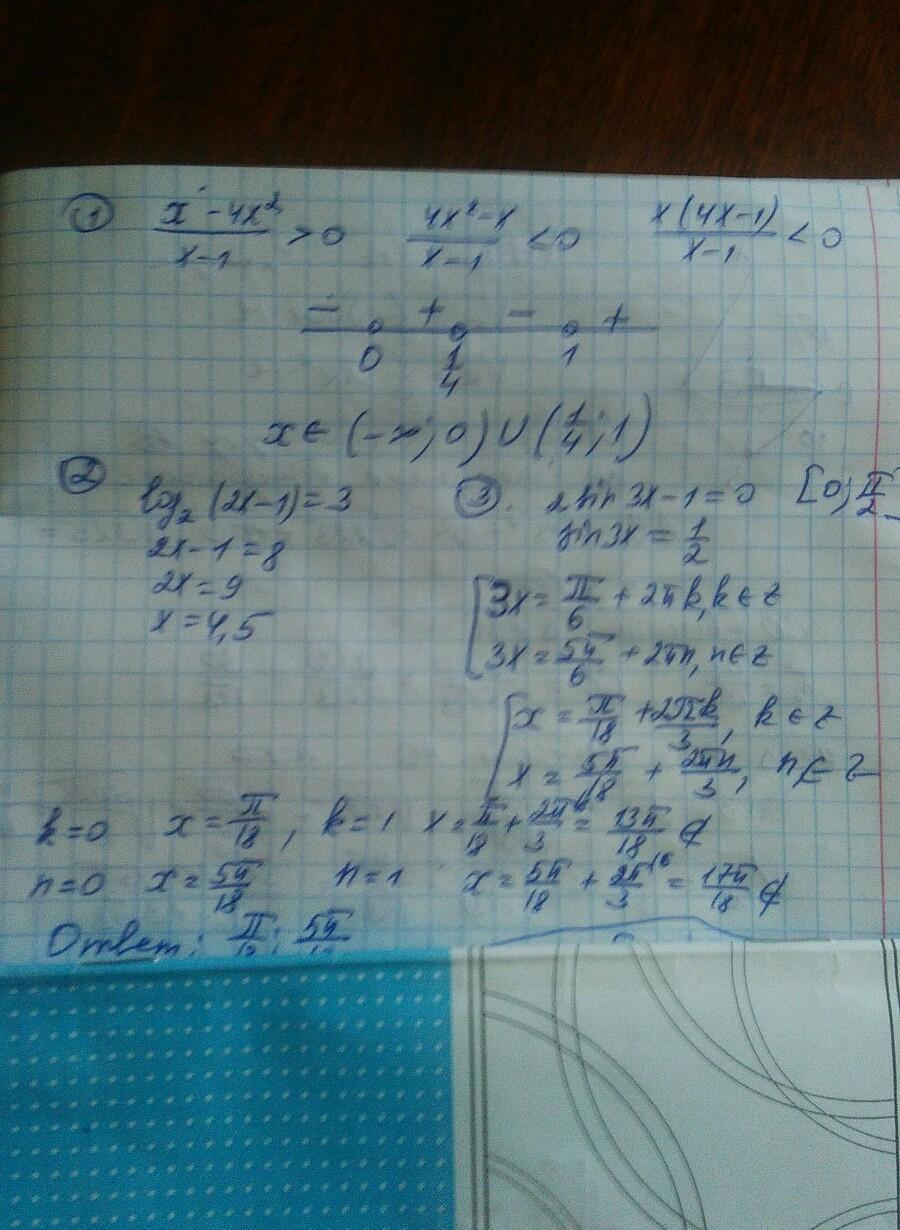 ① (x - 4x²)/(x-1) > 0 (4x² - x)/(x-1) < 0 (x(4x-1))/(x-1) < 0
- + - +
0 1/4 1
x ∈ (-∞; 0) ∪ (1/4; 1)
② log₂ (2x-1) = 3
2x-1 = 8
2x = 9
x = 4,5
③. 2 sin 3x - 1 = 0 [0; π/2
sin 3x = 1/2
[ 3x = π/6 + 2πk, k ∈ z
3x = 5π/6 + 2πn, n ∈ z
[ x = π/18 + 2πk/3, k ∈ z
x = 5π/18 + 2πn/3, n ∈ z
k=0 x = π/18, k=1 x = π/18 + 2π/3 = 13π/18 ∉
n=0 x = 5π/18 n=1 x = 5π/18 + 2π/3 = 17π/18 ∉
Ответ: π/ ; 5π/